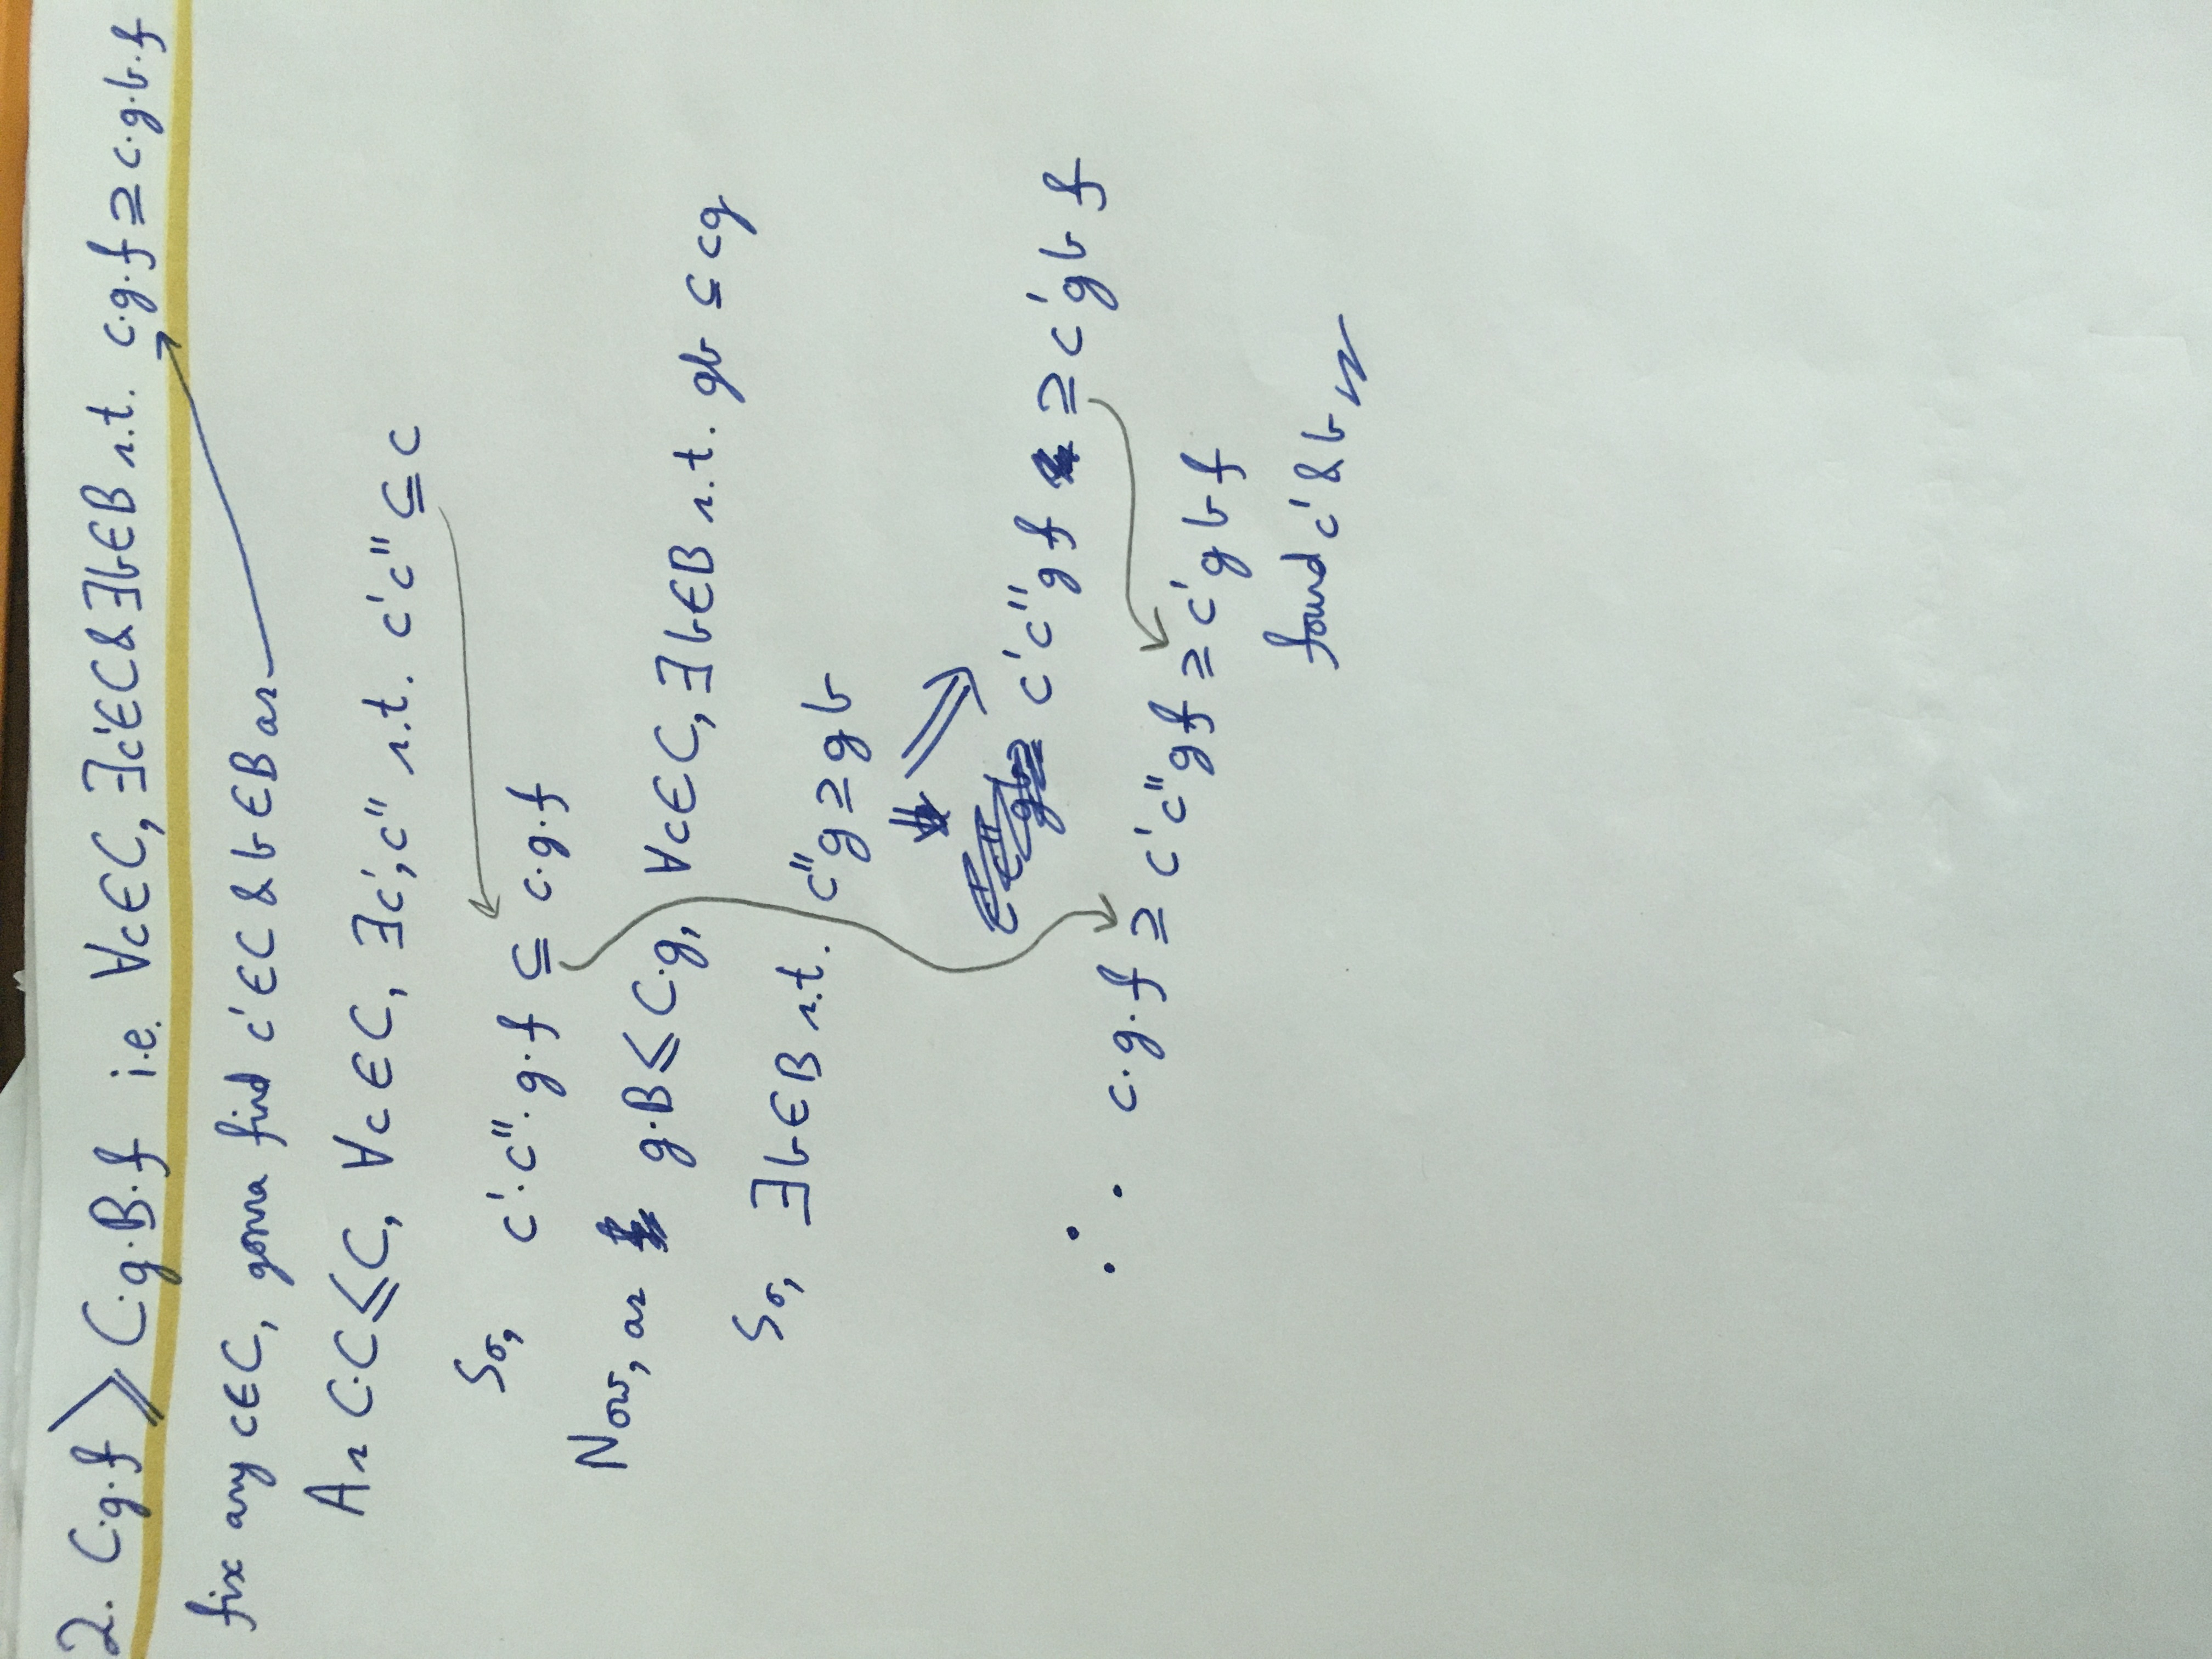 2. C.g.f ⩾ C.g.B.f i.e. ∀c∈C, ∃c'∈C & ∃b∈B s.t. c.g.f ⊇ c.g.b.f
fix any c∈C, gonna find c'∈C & b∈B as
As C.C ⩽ C, ∀c∈C, ∃c',c'' s.t. c'c'' ⊆ c
So, c'.c''.g.f ⊆ c.g.f
Now, as g.B ⩽ C.g, ∀c∈C, ∃b∈B s.t. gb ⊆ cg
So, ∃b∈B s.t. c''g ⊇ gb
⇓ ⇒
c'c''gf ⊇ c'gbf
∴ c.g.f ⊇ c'c''gf ⊇ c'gbf
found c' & b